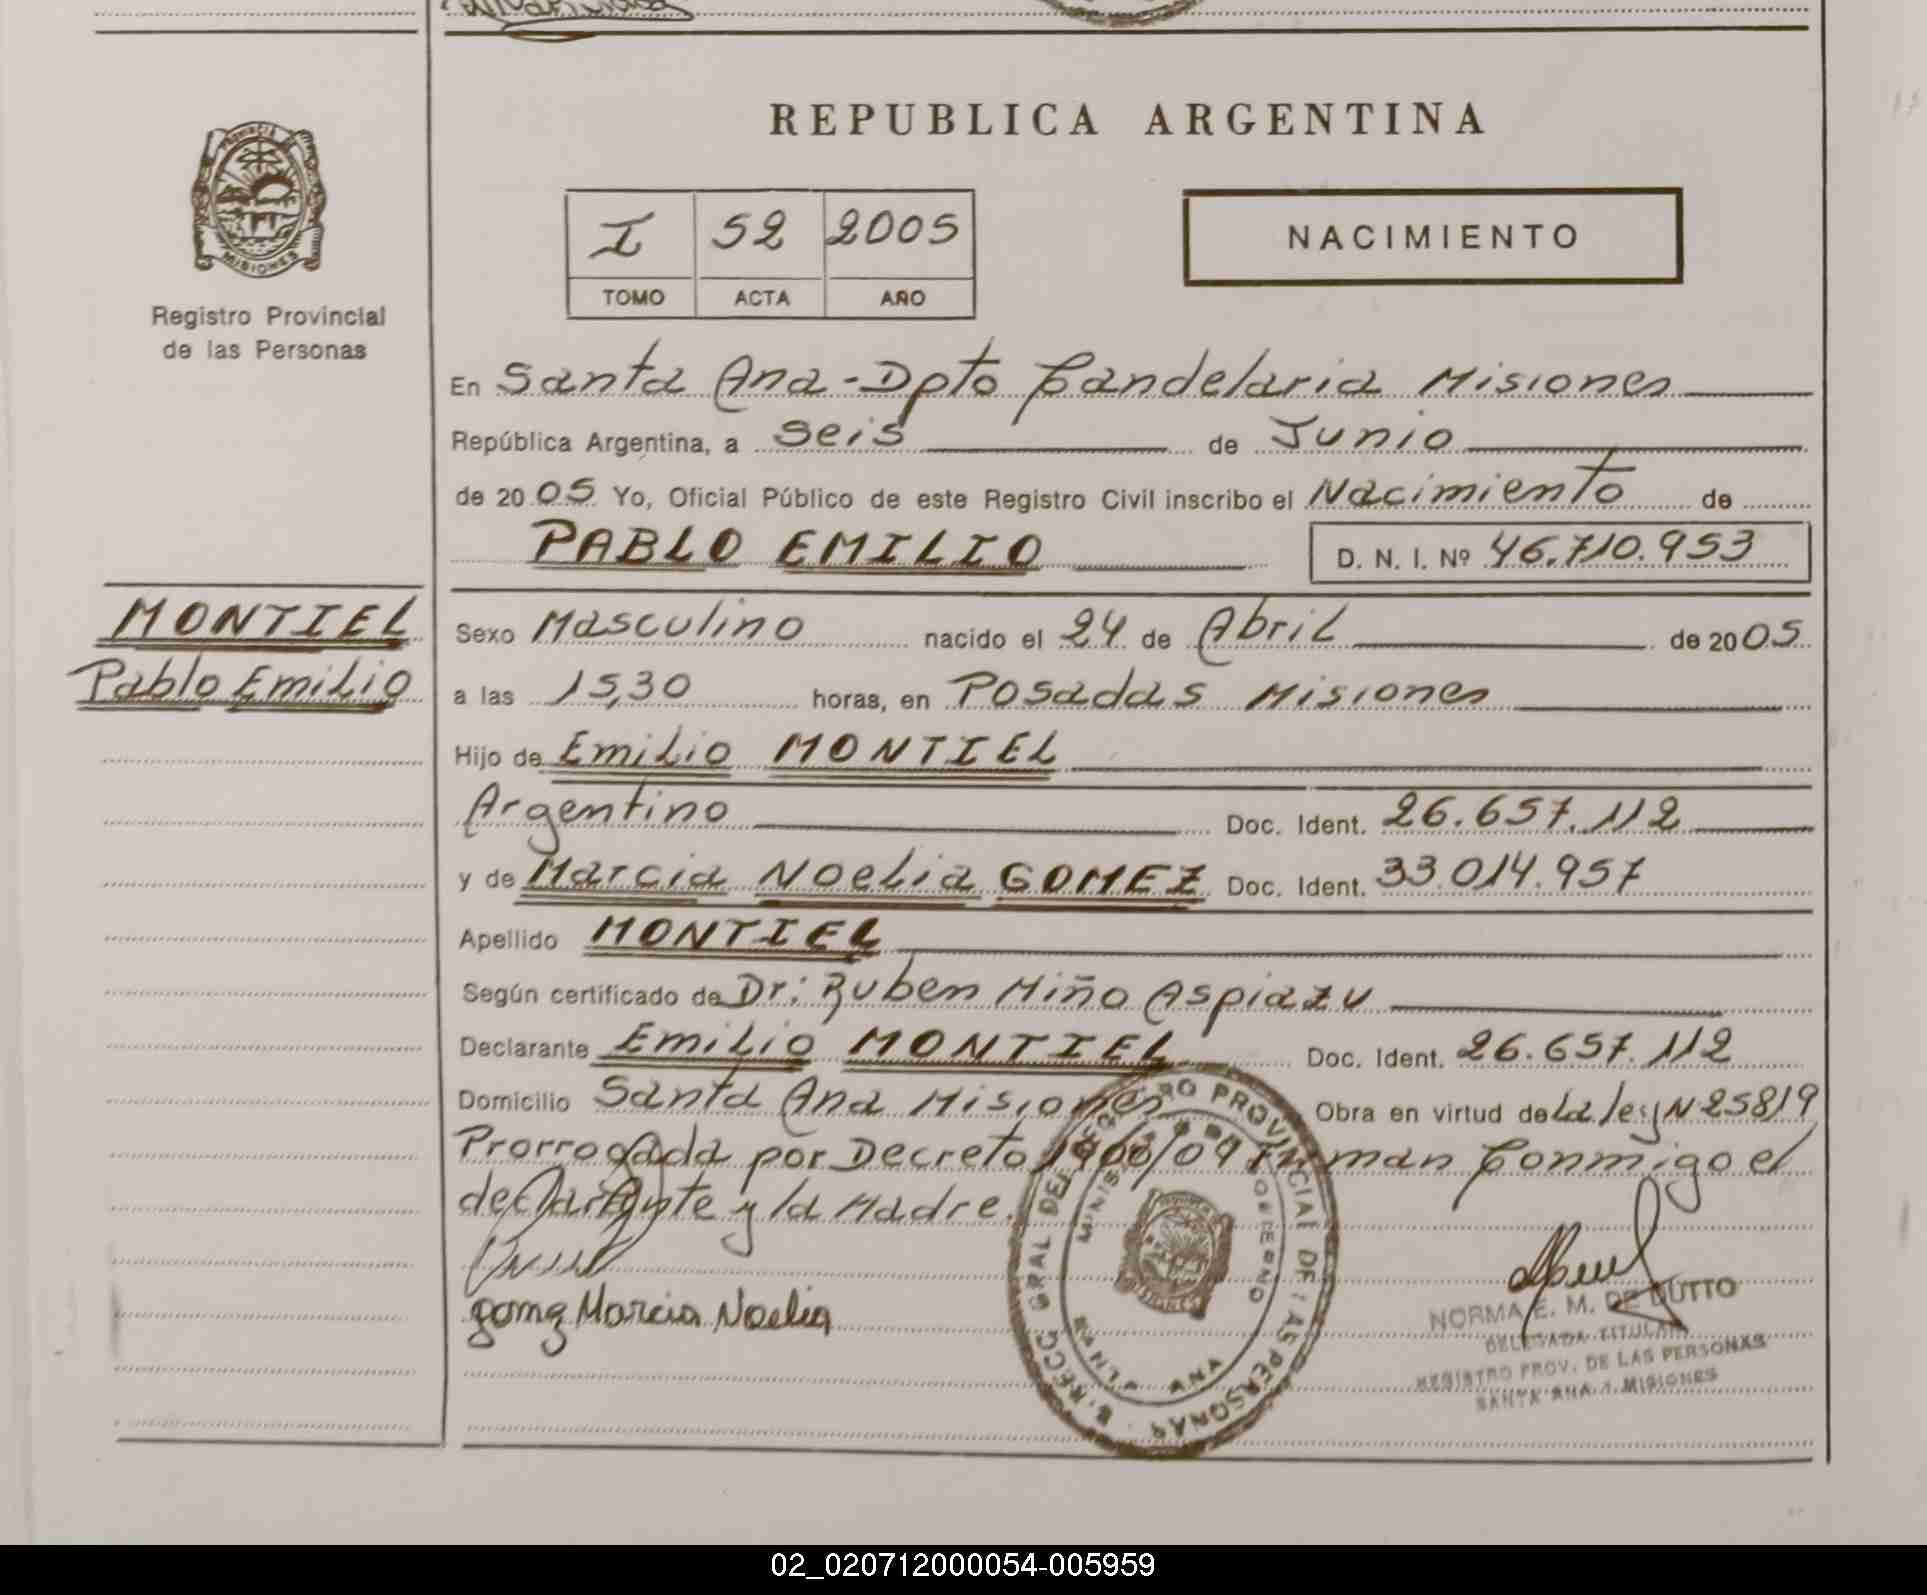 REPUBLICA ARGENTINA
PROVINCIA
MISIONES
Registro Provincial
de las Personas
I 52 2005
TOMO ACTA AÑO
NACIMIENTO
En Santa Ana - Dpto Candelaria Misiones
República Argentina, a seis de Junio
de 2005 Yo, Oficial Público de este Registro Civil inscribo el Nacimiento de
PABLO EMILIO D. N. I. Nº 46.710.953
MONTIEL
Pablo Emilio
Sexo Masculino nacido el 24 de Abril de 2005
a las 15,30 horas, en Posadas Misiones
Hijo de Emilio MONTIEL
Argentino Doc. Ident. 26.657.112
y de Marcia Noelia GOMEZ Doc. Ident. 33.014.957
Apellido MONTIEL
Según certificado de Dr: Ruben Miño Aspiazu
Declarante Emilio MONTIEL Doc. Ident. 26.657.112
Domicilio Santa Ana Misiones Obra en virtud de la ley N 25819
Prorrogada por Decreto Firman Conmigo el
declarante y la Madre.
gomez Marcia Noelia
GRAL DEL REGISTRO PROVINCIAL DE LAS PERSONAS
GOBIERNO
SANTA ANA
MISIONES
NORMA E. M. DE DUTTO
DELEGADA TITULAR
REGISTRO PROV. DE LAS PERSONAS
SANTA ANA MISIONES
02_020712000054-005959